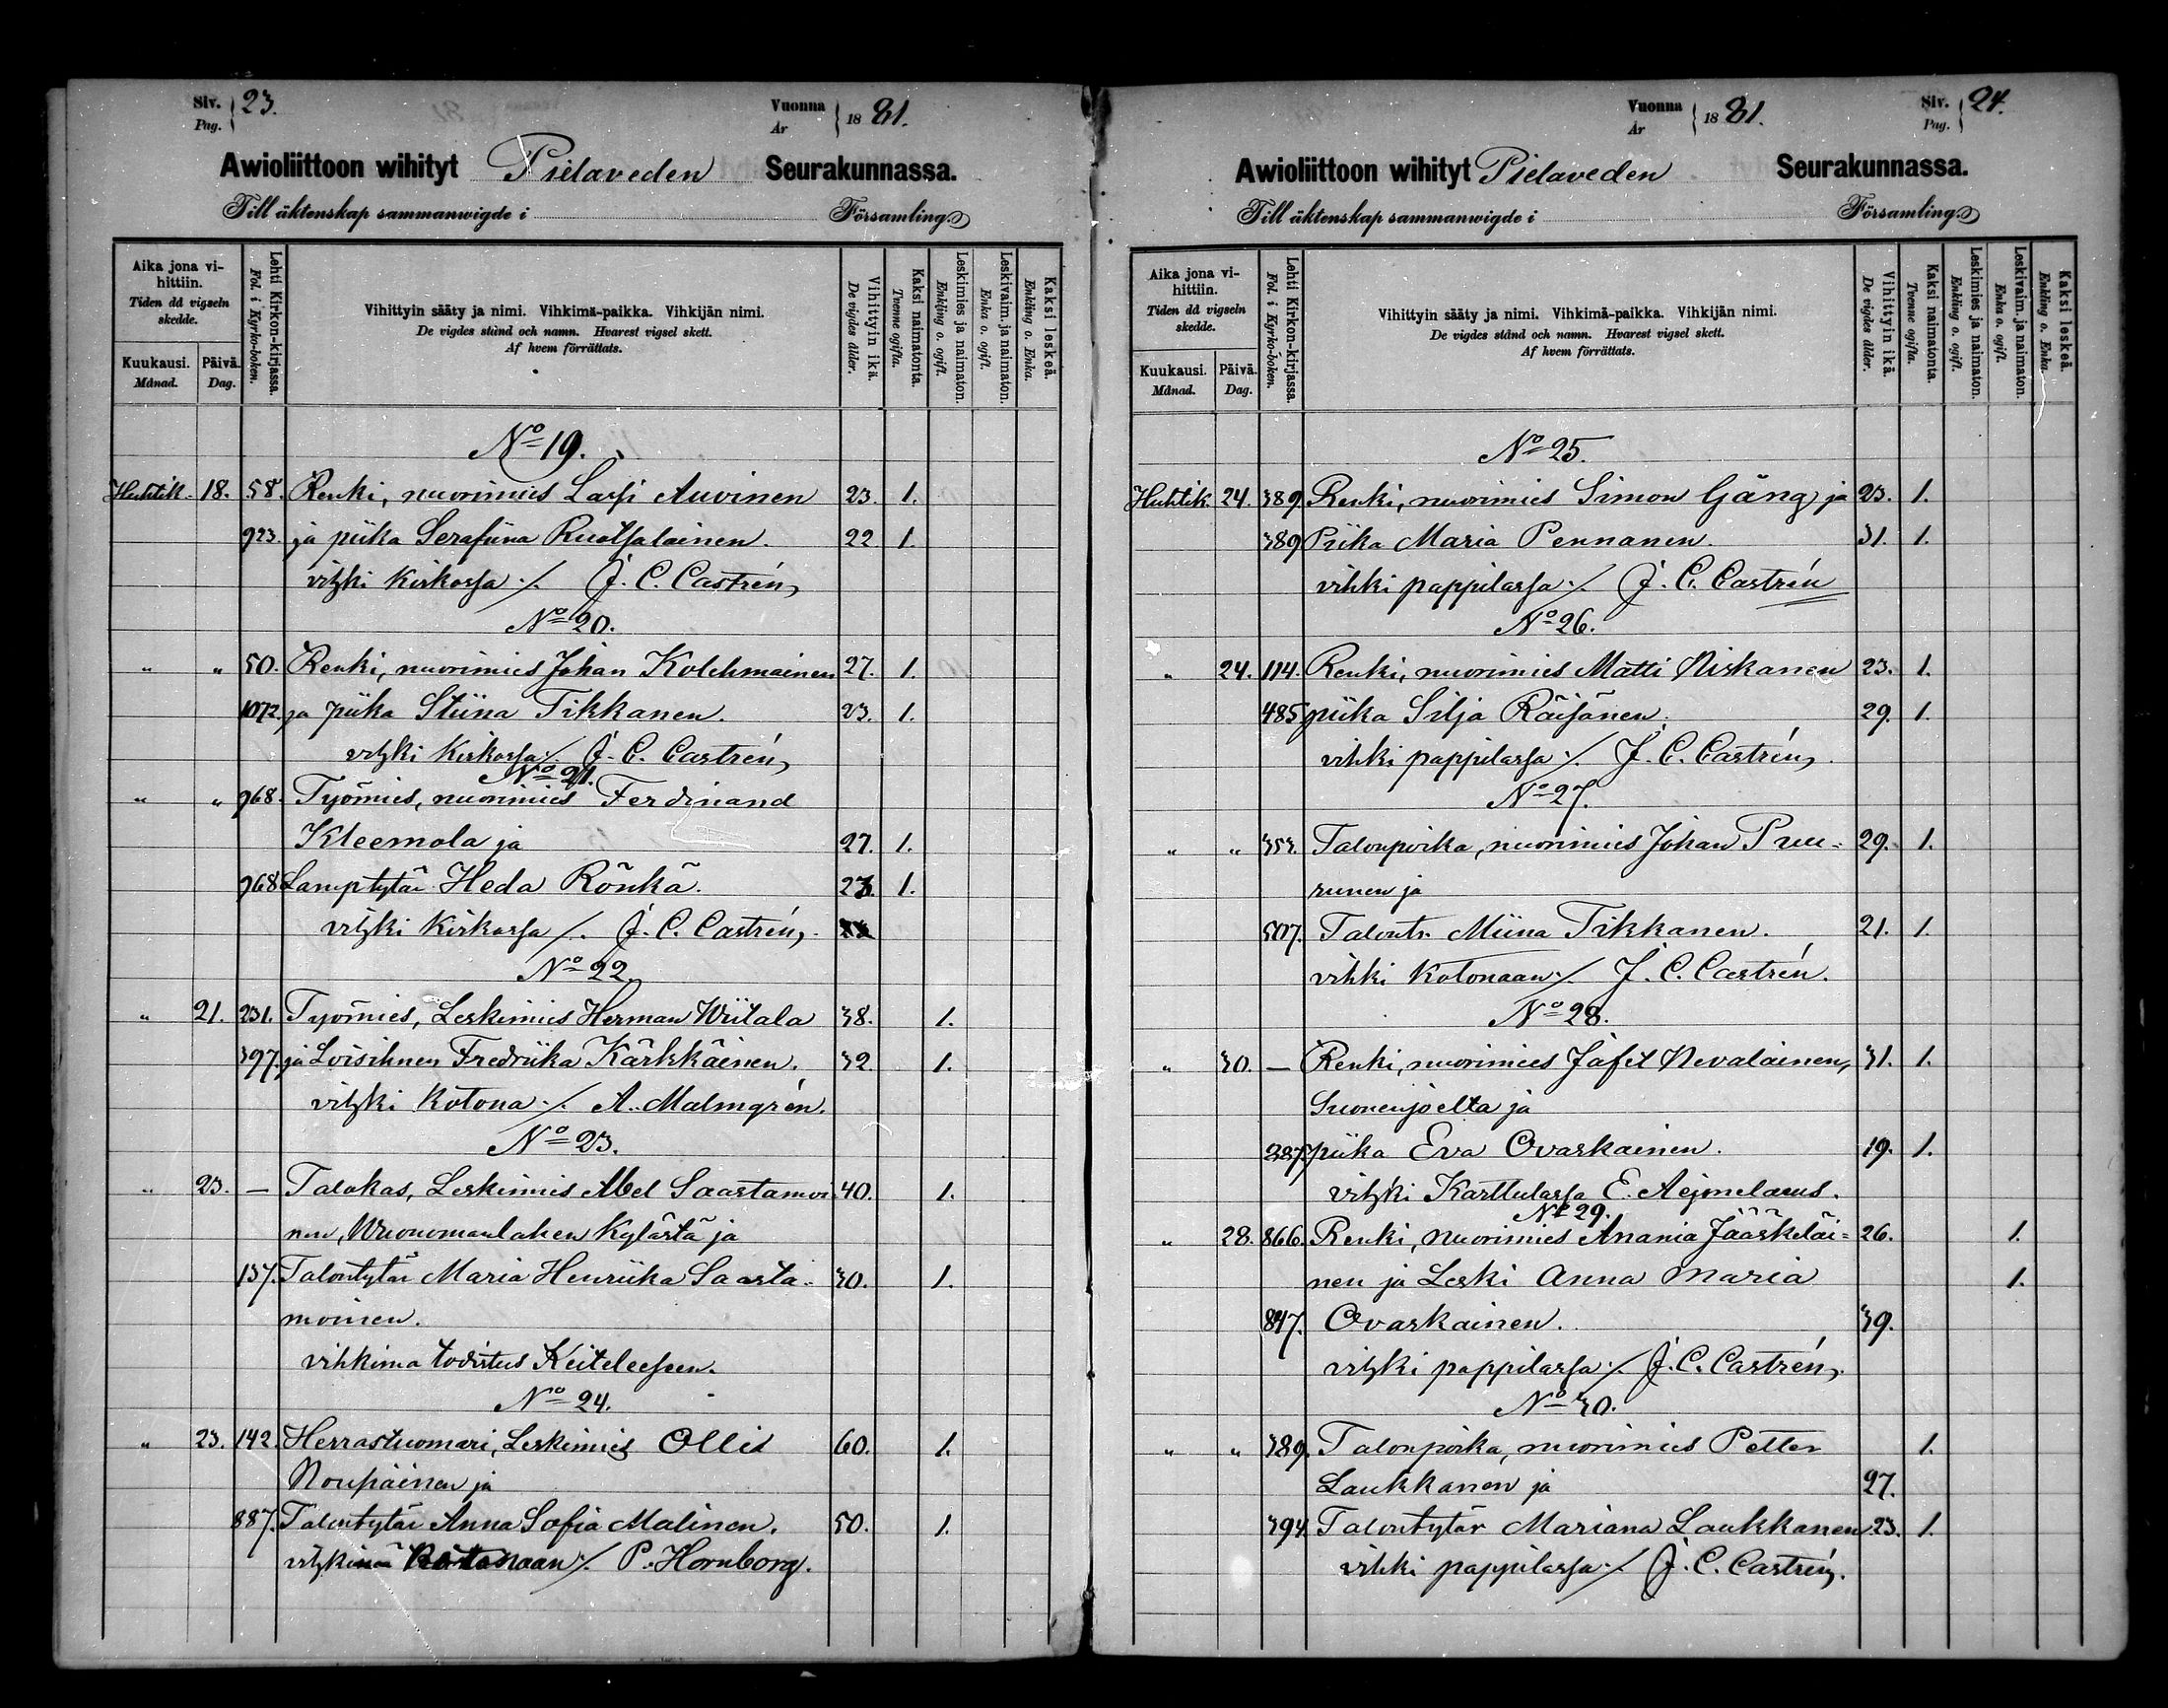 Siv. Pag. 23.
Vuonna År 1881.
Awioliittoon wihityt Pielaveden Seurakunnassa.
Till äktenskap sammanwigde i Församling.
Aika jona vihittiin. Tiden då vigseln skedde.
Kuukausi. Månad.
Päivä. Dag.
Lehti Kirkon-kirjassa. Fol. i Kyrko-boken.
Vihittyin sääty ja nimi. Vihkimä-paikka. Vihkijän nimi.
De vigdes stånd och namn. Hvarest vigsel skett.
Af hvem förrättats.
Vihittyin ikä. De vigdes ålder.
Kaksi naimatonta. Tvenne ogifta.
Leskimies ja naimaton. Enkling o. ogift.
Leskivaim. ja naimaton. Enka o. ogift.
Kaksi leskeä. Enkling o. Enka.
No 19.
Huhtik. 18. 58. Renki, nuorimies Lassi Auvinen 23. 1.
923. ja piika Serafiina Ruotsalainen. 22 1.
vihki Kirkossa ./. J. C. Castrén,
No 20.
" " 50. Renki, nuorimies Johan Kolehmainen 27. 1.
1072. ja piika Stiina Tikkanen. 23. 1.
vihki Kirkossa ./. J. C. Castrén,
No 21.
" " 968. Työmies, nuorimies Ferdinand
Kleemola ja 27. 1.
968 Lamptytär Heda Rönkä. 1.
vihki Kirkossa ./. J. C. Castrén,
No 22.
" 21. 231. Työmies, Leskimies Herman Wiitala 38. 1.
397. ja Loisihnen Fredriika Kärkkäinen. 32. 1.
vihki Kotona ./. A. Malmgrén.
No 23.
" 23. — Talokas, Leskimies Abel Saastamoi 40. 1.
nen, Wuonomanlahen Kylästä ja
137. Talontytär Maria Henriika Saasta- 30. 1.
moinen.
vihkima todistus Keiteleeseen.
No 24.
" 23. 142. Herrastuomari, Leskimies Olli 60. 1.
Noupäinen ja
887. Talontytär Anna Sofia Malinen. 50. 1.
./. P. Hornborg.
Vuonna År 1881.
Siv. Pag. 24.
Awioliittoon wihityt Pielaveden Seurakunnassa.
Till äktenskap sammanwigde i Församling.
Aika jona vihittiin. Tiden då vigseln skedde.
Kuukausi. Månad.
Päivä. Dag.
Lehti Kirkon-kirjassa. Fol. i Kyrko-boken.
Vihittyin sääty ja nimi. Vihkimä-paikka. Vihkijän nimi.
De vigdes stånd och namn. Hvarest vigsel skett.
Af hvem förrättats.
Vihittyin ikä. De vigdes ålder.
Kaksi naimatonta. Tvenne ogifta.
Leskimies ja naimaton. Enkling o. ogift.
Leskivaim. ja naimaton. Enka o. ogift.
Kaksi leskeä. Enkling o. Enka
No 25.
Huhtik. 24. 389. Renki, nuorimies Simon Gäng ja 23. 1.
389 Piika Maria Pennanen. 31. 1.
vihki pappilassa ./. J. C. Castrén
No 26.
" 24. 114. Renki, nuorimies Matti Niskanen 23. 1.
485 piika Silja Räisänen. 29. 1.
vihki pappilassa ./. J. C. Castrén,
No 27.
" " 353. Talonpoika, nuorimies Johan Puu- 29. 1.
runen ja
507. Talontr. Miina Tikkanen. 21. 1.
vihki Kotonaan ./. J. C. Castrén.
No 28.
" 30. — Renki, nuorimies Jafet Nevalainen, 31. 1.
Suonenjoelta ja
387. piika Eva Ovaskainen. 19. 1.
vihki Karttulassa E. Aejmelaeus.
No 29.
" 28. 866. Renki, nuorimies Anania Jääskeläi- 26. 1.
nen ja Leski Anna Maria 1.
847. Ovaskainen. 39.
vihki pappilassa ./. J. C. Castrén,
No 30.
" " 389. Talonpoika, nuorimies Petter 1.
Laukkanen ja 27.
394 Talontytär Mariana Laukkanen 23. 1.
vihki pappilassa ./. J. C. Castrén,